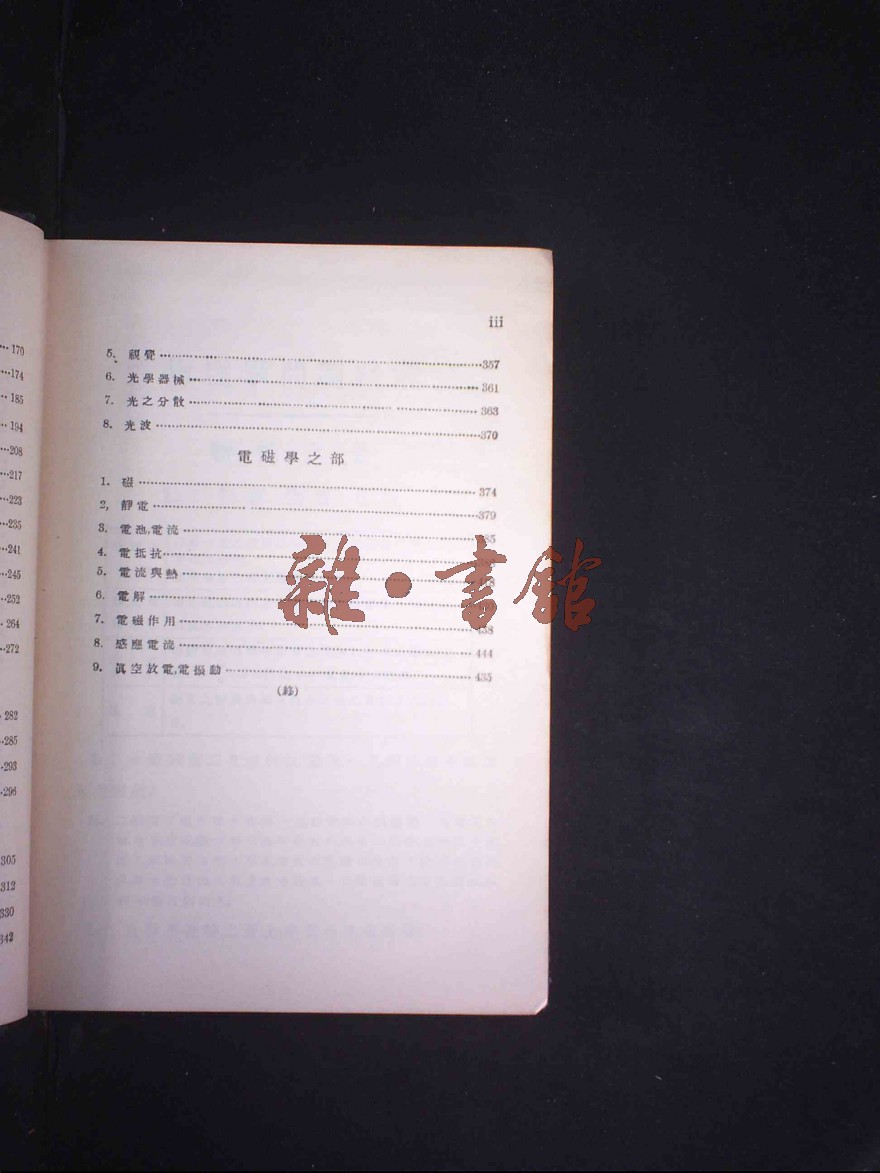 170
174
185
194
208
217
223
235
241
245
252
264
272
282
285
293
296
305
312
330
342
iii
5. 視覺 357
6. 光學器械 361
7. 光之分散 363
8. 光波 370
電磁學之部
1. 磁 374
2, 靜電 379
3. 電池,電流
4. 電抵抗
5. 電流與熱
6. 電解
7. 電磁作用 438
8. 感應電流 444
9. 眞空放電,電振動 435
(終)
雜・書館